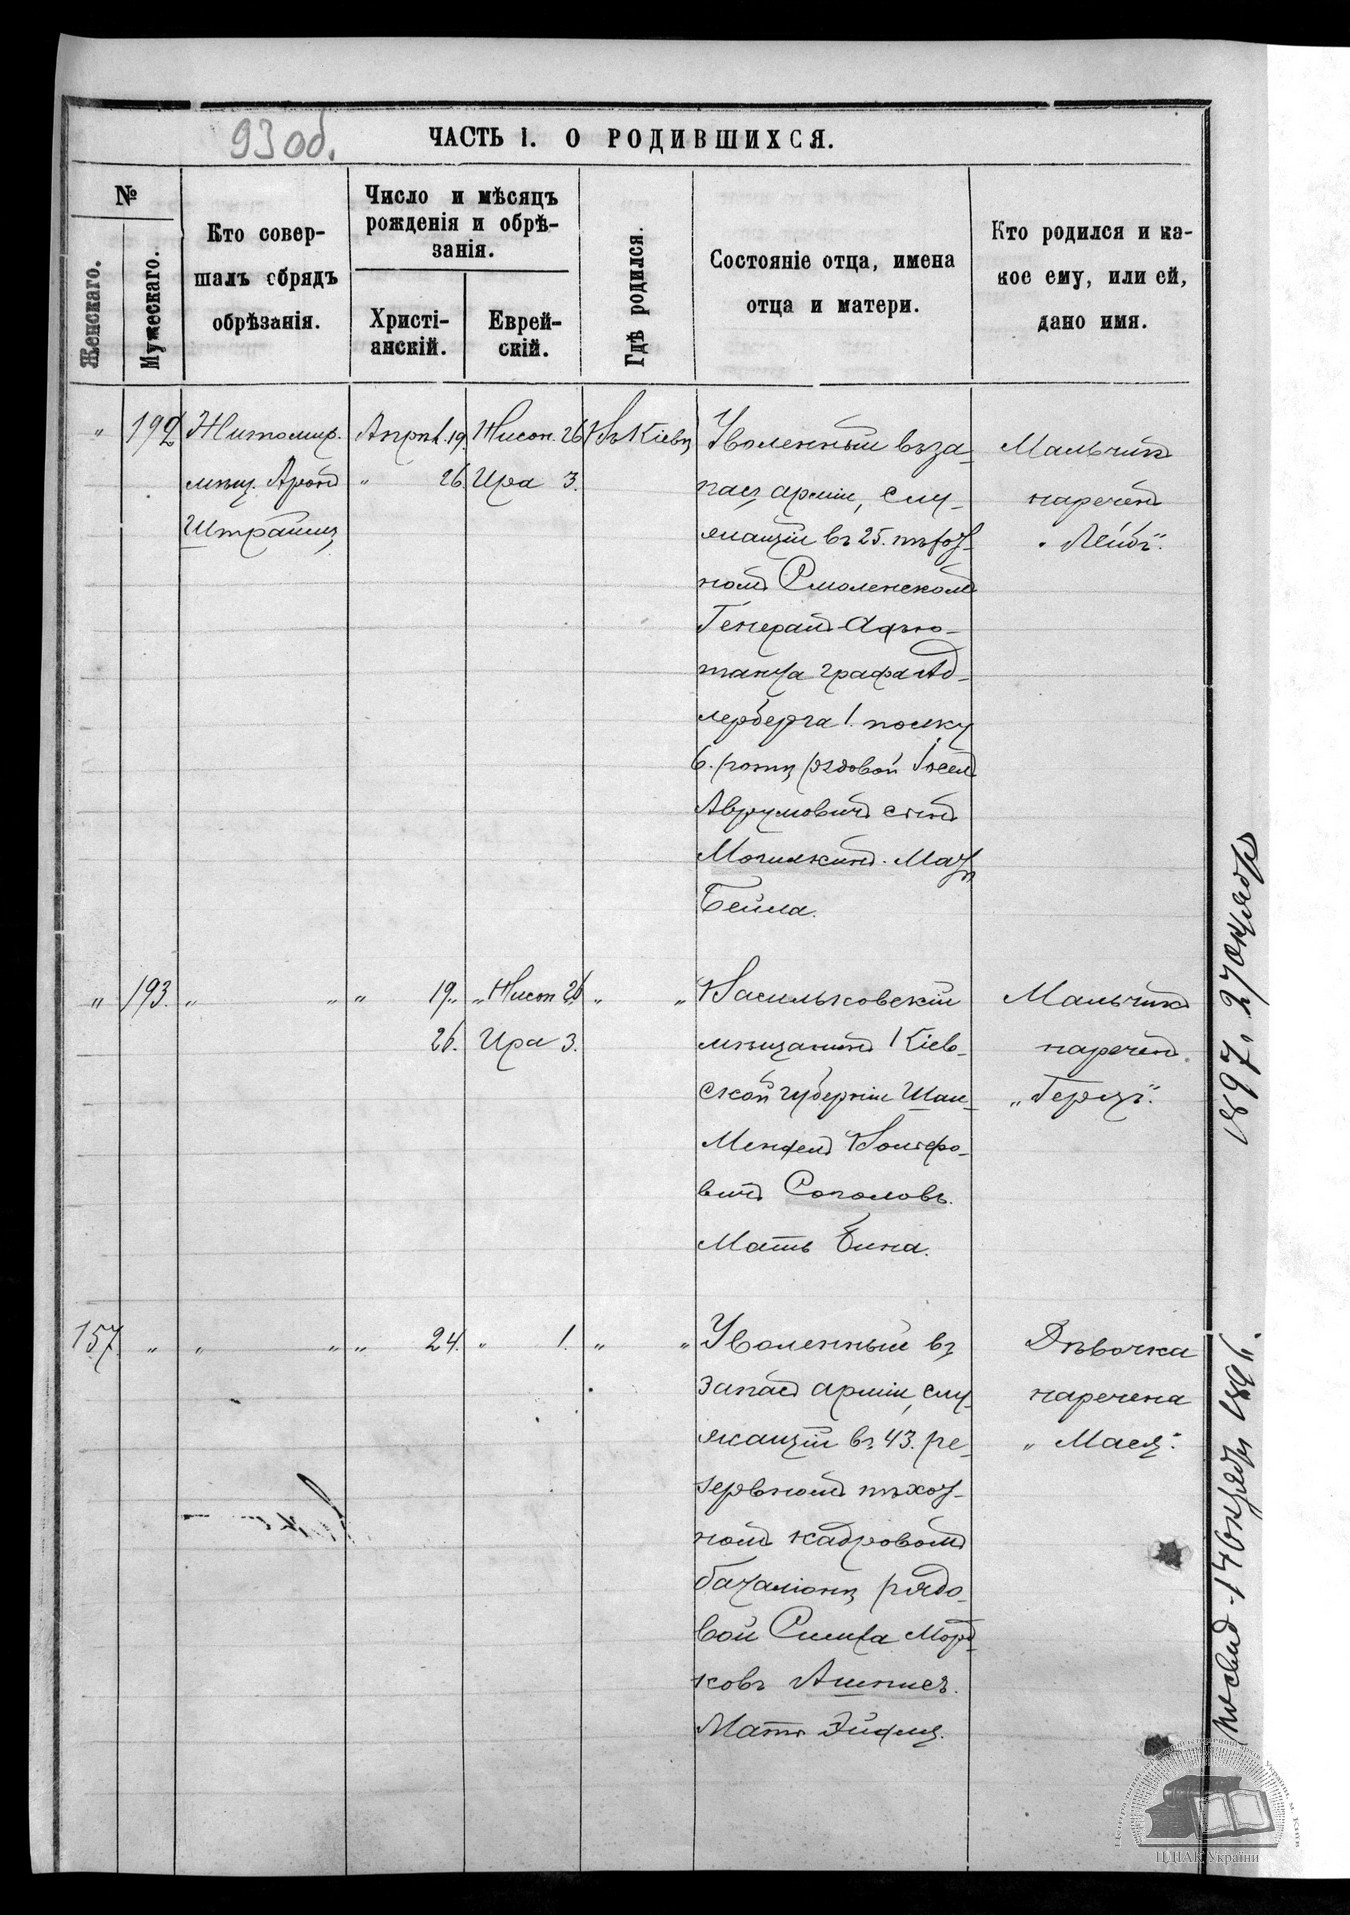 93 об.
ЧАСТЬ I. О РОДИВШИХСЯ.
№
Женскаго.
Мужескаго.
Кто совер-
шалъ обрядъ
обрѣзанія.
Число и мѣсяцъ
рожденія и обрѣ-
занія.
Христі-
анскій.
Еврей-
скій.
Гдѣ родился.
Состояніе отца, имена
отца и матери.
Кто родился и ка-
кое ему, или ей,
дано имя.
„ 192
Житомир.
мѣщ. Аронъ
Апрѣл. 19.
„ 26.
Нисон. 26
Ира 3.
Въ Кіевѣ
Уволенный въ за-
пасъ арміи, слу-
жащій въ 25. пѣхот-
номъ Смоленскомъ
Генералъ-Адъю-
танта графа Ад-
лерберга 1. полку
6. роты рядовой Іосель
Аврумовичъ сынъ
Могилкинъ. Мать
Бейла.
Мальчикъ
нареченъ
„Лейбъ".
„ 193. „ „
„ 19.
26.
„ Нисон 26
Ира 3.
„ „
Васильковскій
мѣщанинъ Кіев-
ской губерніи
Мендель
вичъ Соколовъ.
Мать Бина.
Мальчикъ
нареченъ
„Герцъ".
157. „ „ „
„ 24.
„ 1.
„ „
Уволенный въ
запасъ арміи, слу-
жащій въ 43. ре-
зервномъ пѣхот-
номъ кадровомъ
баталіонѣ рядо-
вой Симха Морд-
ковъ
Мать Эйдля.
Дѣвочка
наречена
„Мася".
1897. 27 октября
17 октября 1896 г.
ЦДІАК України